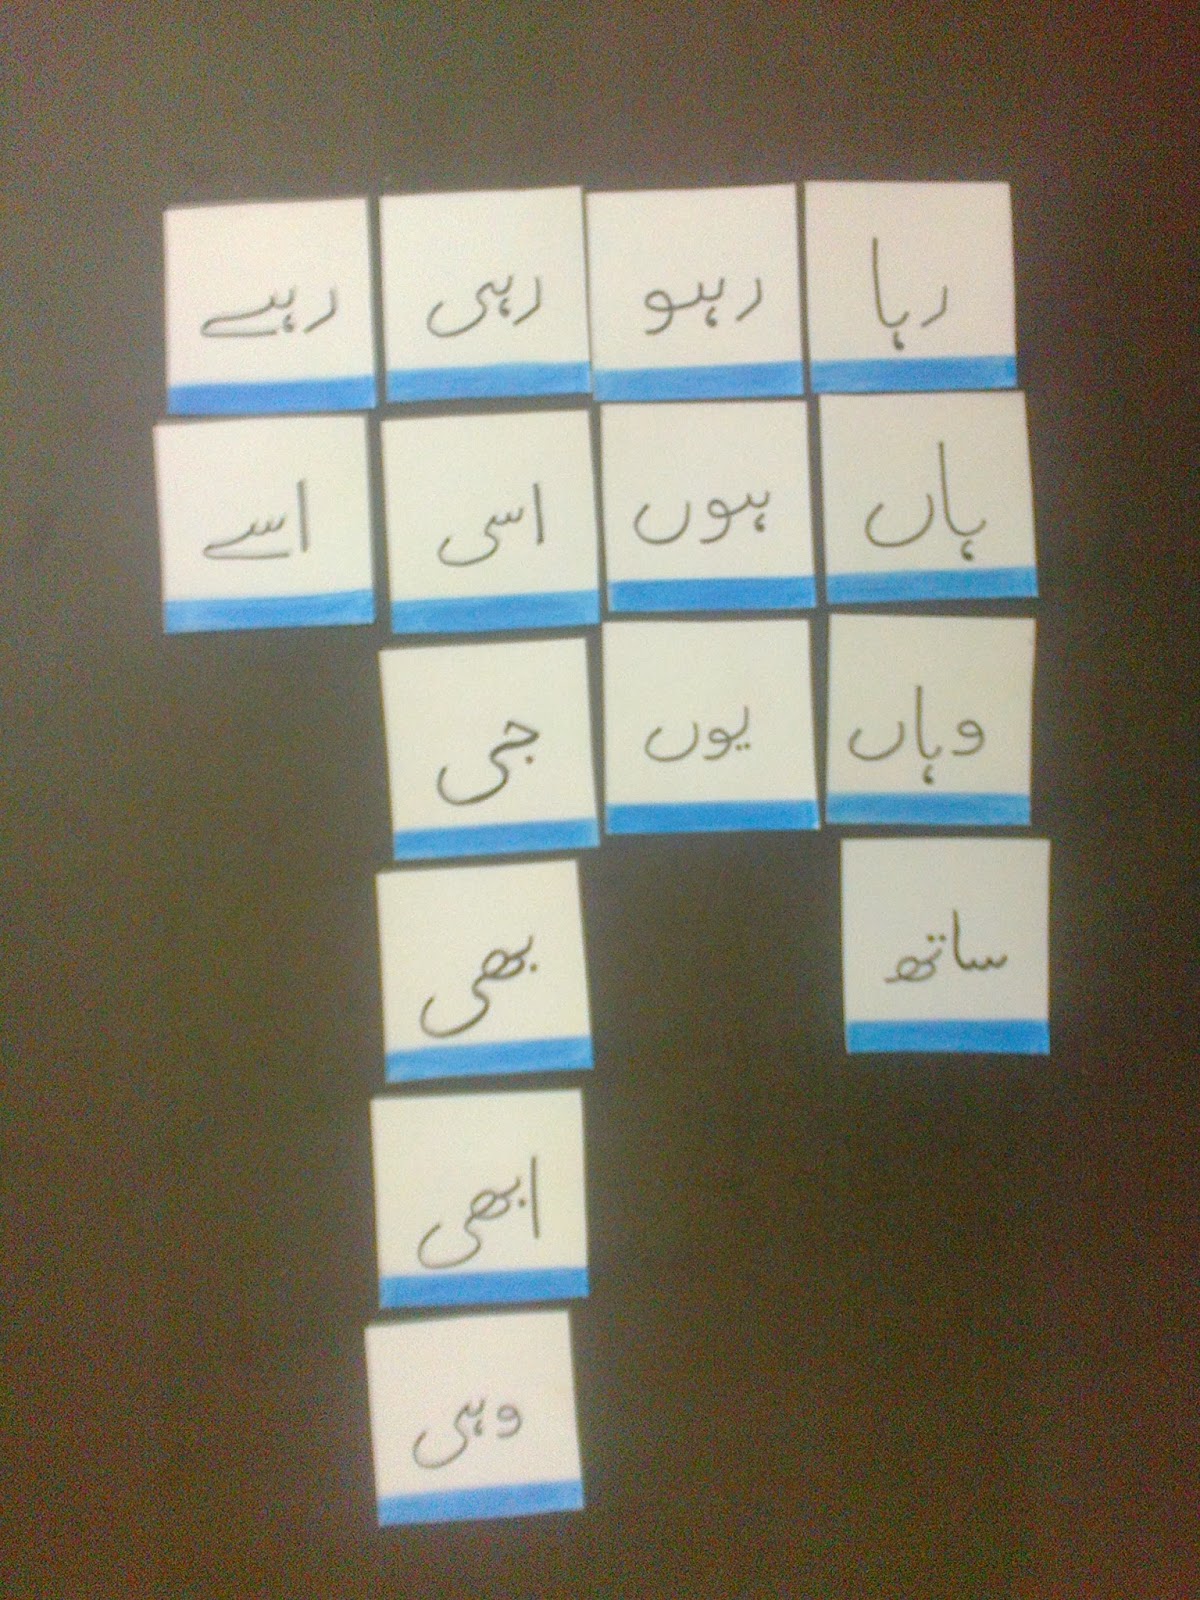 رہا رہو رہی رہے
ہاں ہوں اسی اسے
وہاں یوں جی
ساتھ بھی
ابھی
وہی